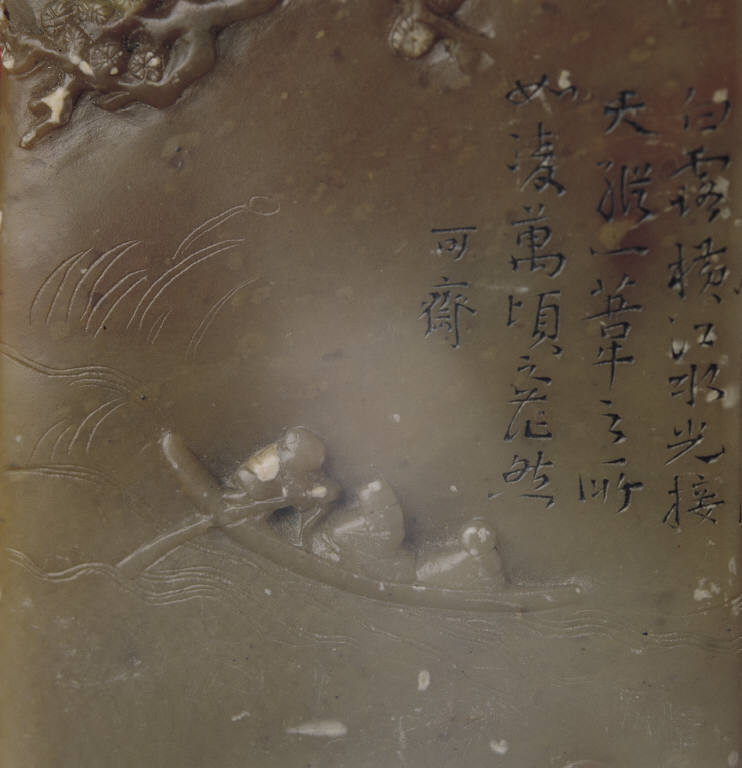 白露橫江水光接
天縱一葦之所
如淩萬頃之茫然
可齋